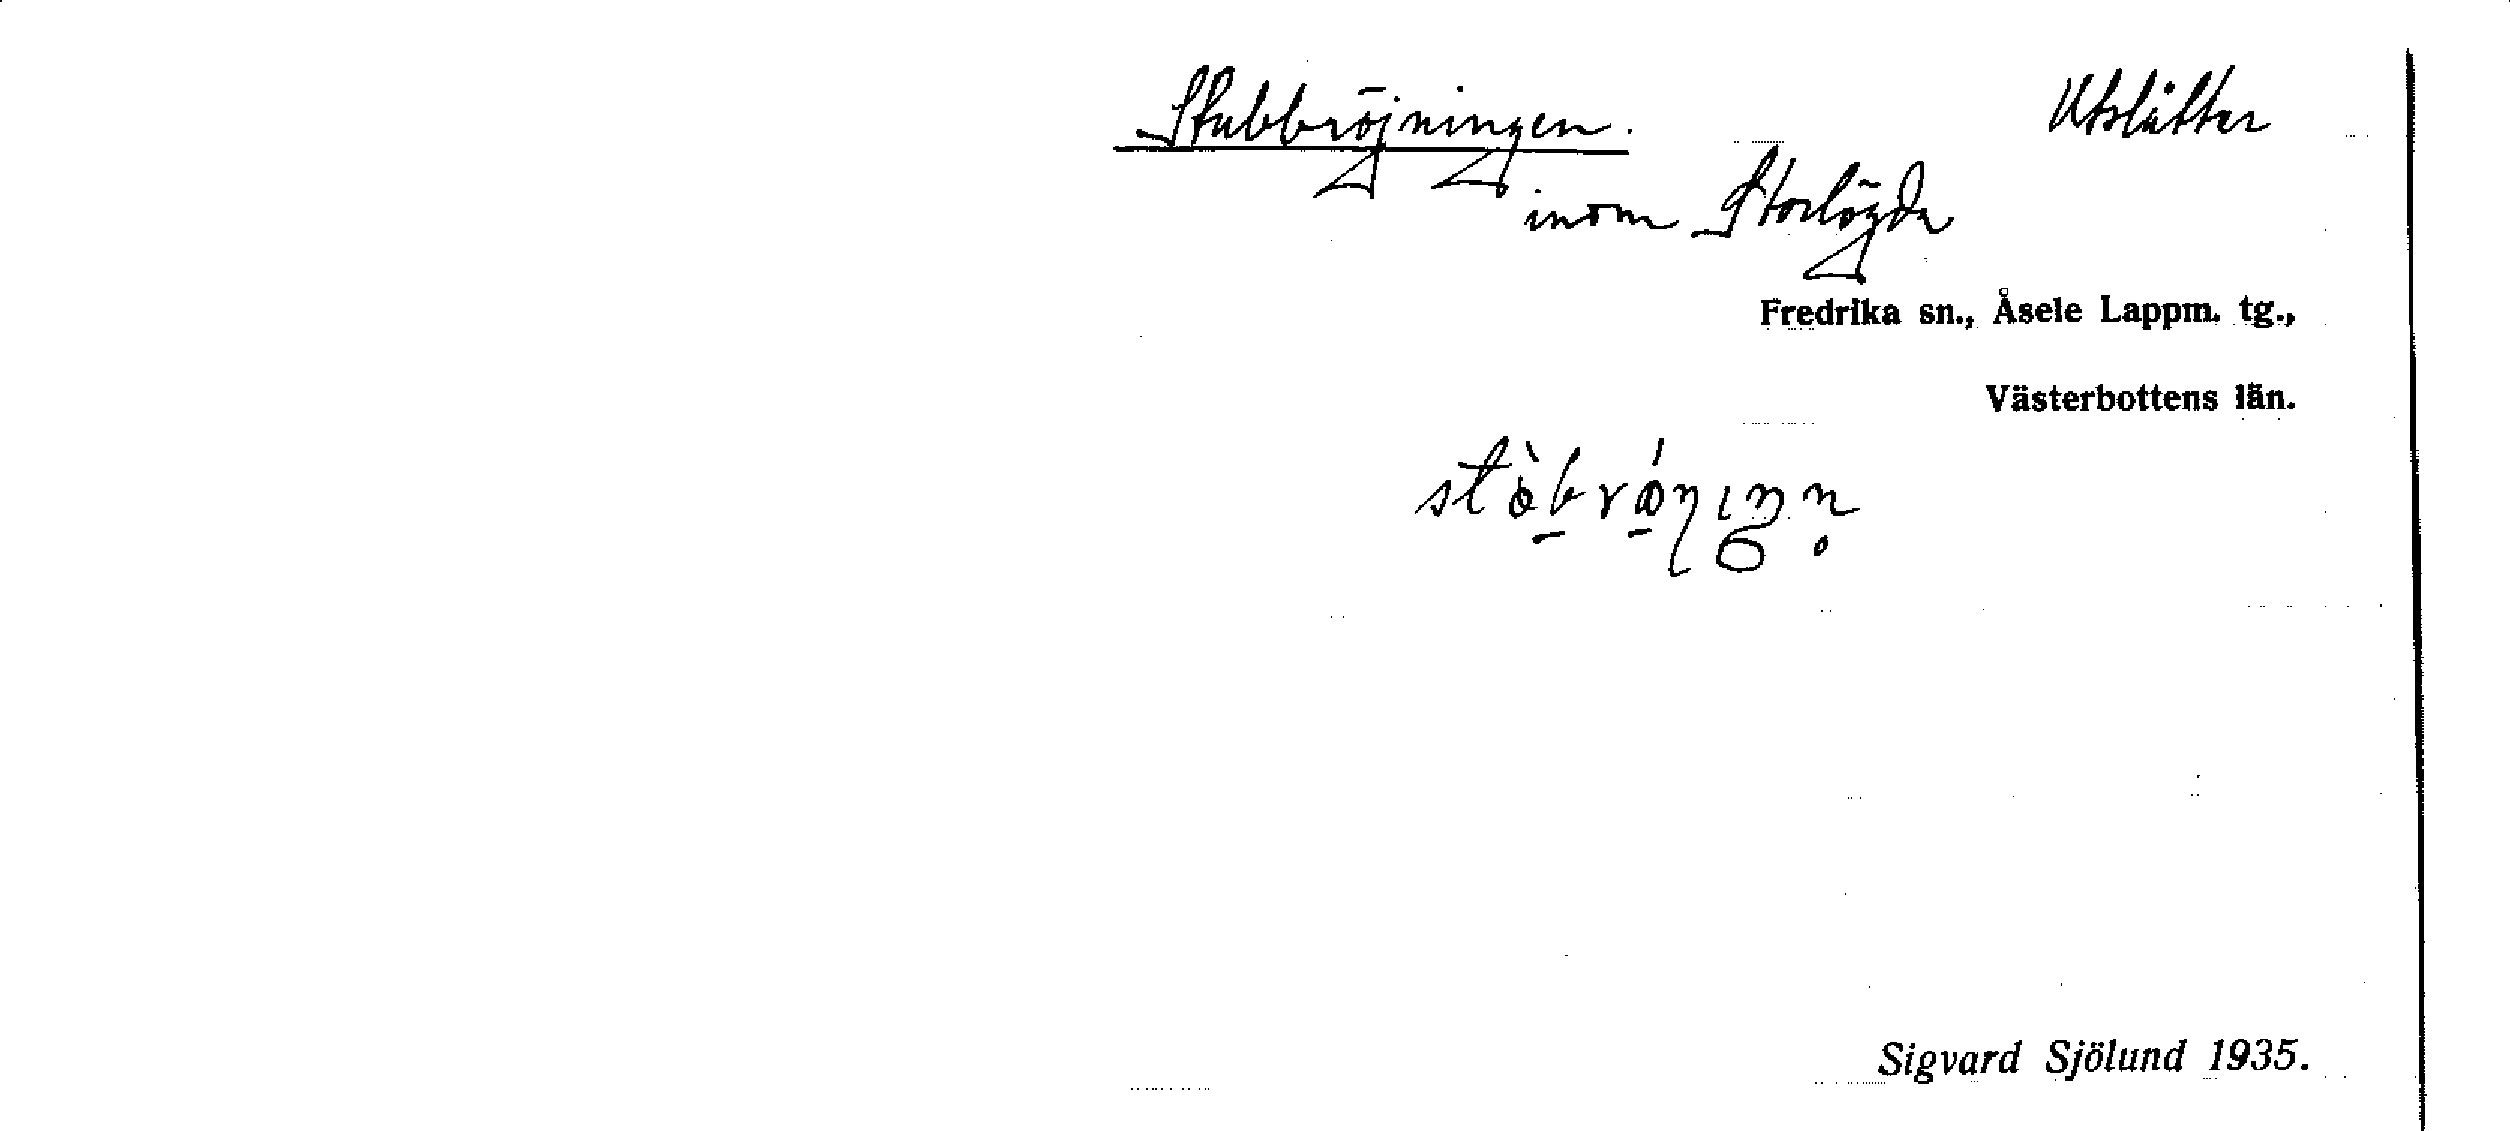 Stubbröjningen. Utslåtter
inom Storlögda
Fredrika sn., Åsele Lappm. tg.,
Västerbottens län.
Sigvard Sjölund 1935.